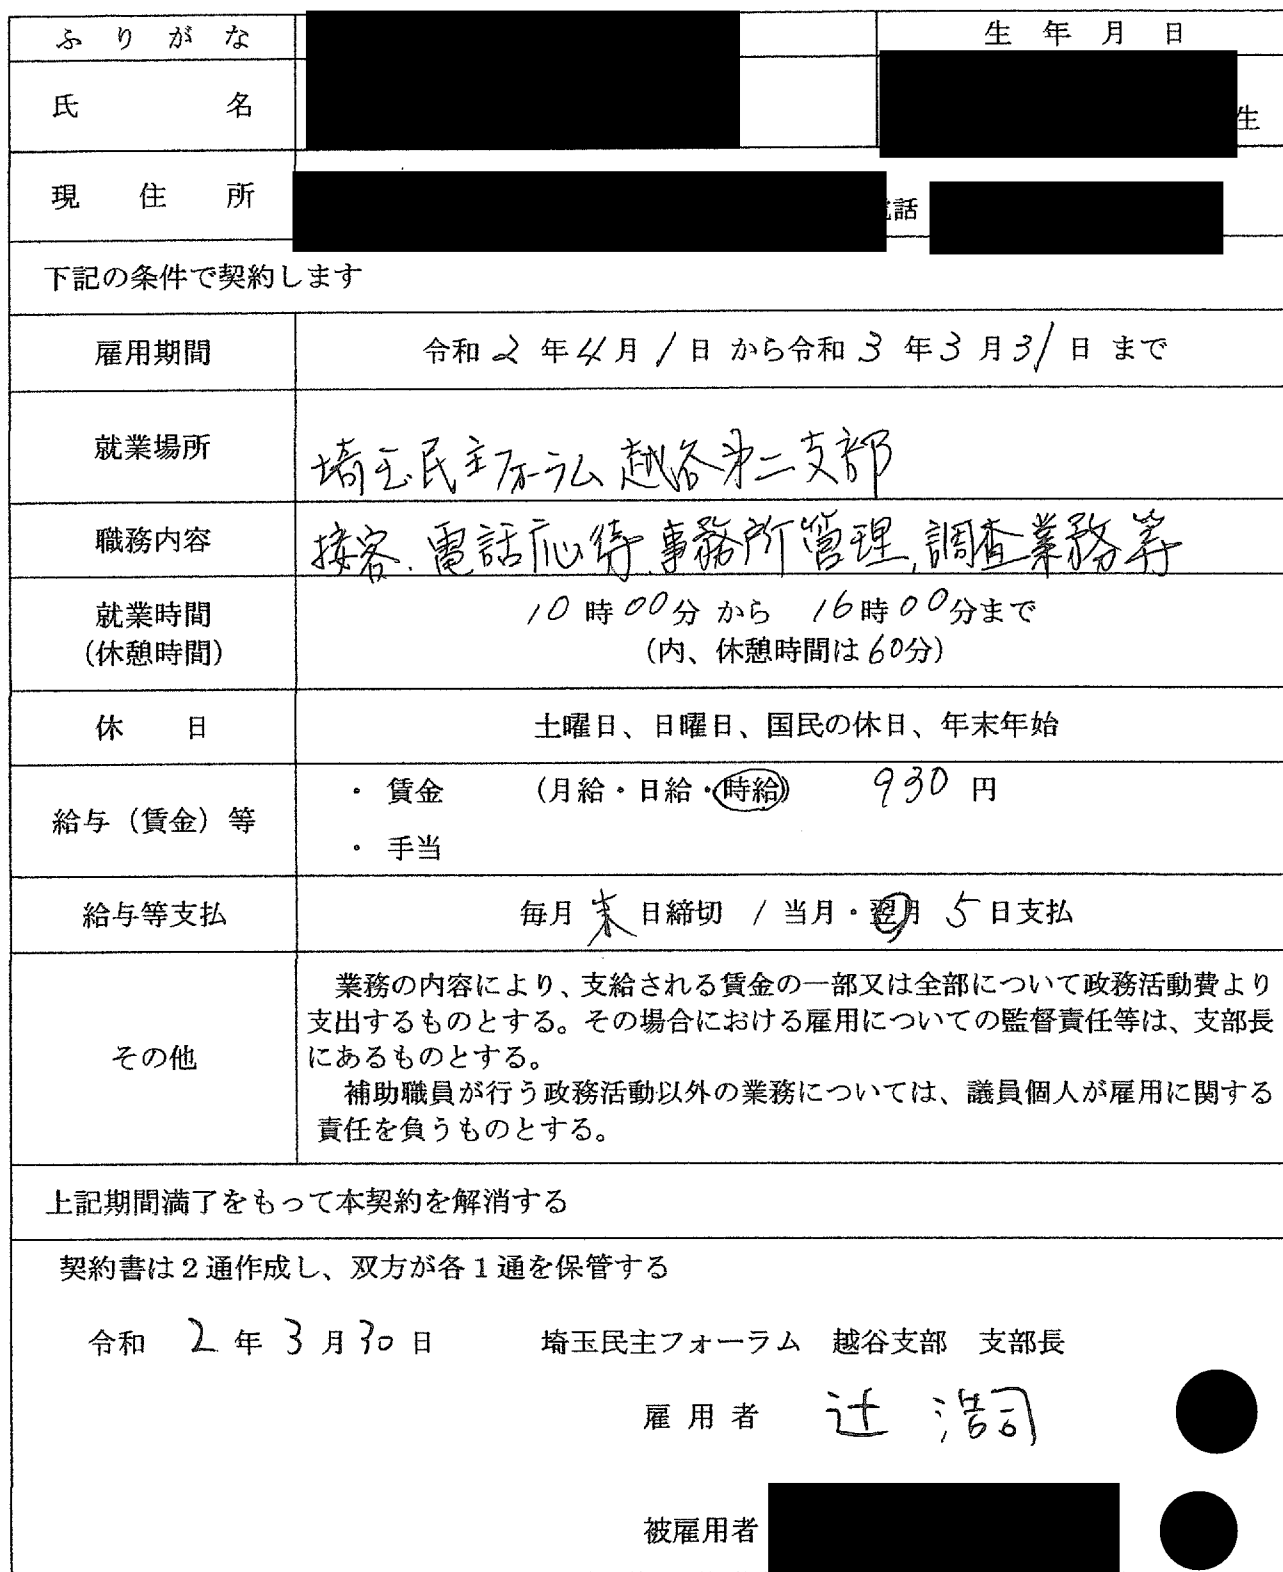 ふりがな
生年月日
氏名
生
現住所
話
下記の条件で契約します
雇用期間
令和 2 年 4 月 1 日 から令和 3 年 3 月 31 日 まで
就業場所
埼玉民主フォーラム 越谷第二支部
職務内容
接客、電話応待、事務所管理、調査業務等
就業時間
(休憩時間)
10 時 00分 から 16時 00分まで
(内、休憩時間は 60分)
休日
土曜日、日曜日、国民の休日、年末年始
給与（賃金）等
・ 賃金 (月給・日給・時給) 930 円
・ 手当
給与等支払
毎月 末 日締切 / 当月・翌月 5 日支払
その他
業務の内容により、支給される賃金の一部又は全部について政務活動費より
支出するものとする。その場合における雇用についての監督責任等は、支部長
にあるものとする。
補助職員が行う政務活動以外の業務については、議員個人が雇用に関する
責任を負うものとする。
上記期間満了をもって本契約を解消する
契約書は２通作成し、双方が各１通を保管する
令和 2 年 3 月 30 日 埼玉民主フォーラム 越谷支部 支部長
雇用者 辻 浩司
被雇用者